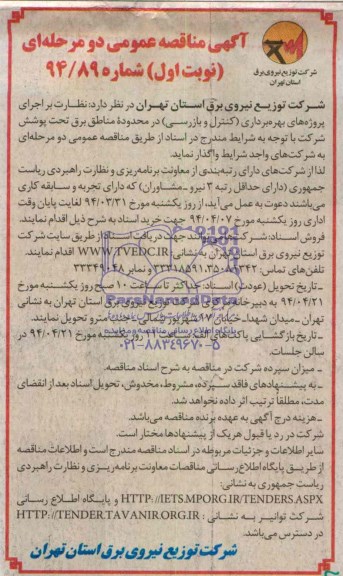 آگهی مناقصه عمومی دو مرحله‌ای
(نوبت اول) شماره ۹۴/۸۹
شرکت توزیع نیروی برق
استان تهران
شرکت توزیع نیروی برق استان تهران در نظر دارد: نظارت بر اجرای
پروژه‌های بهره‌برداری (کنترل و بازرسی) در محدودهٔ مناطق برق تحت پوشش
شرکت با توجه به شرایط مندرج در اسناد از طریق مناقصه عمومی دو مرحله‌ای
به شرکت‌های واجد شرایط واگذار نماید.
لذا از شرکت‌های دارای رتبه‌بندی از معاونت برنامه‌ریزی و نظارت راهبردی ریاست
جمهوری (دارای حداقل رتبه ۳ نیرو ـ مشاوران) که دارای تجربه و سابقه کاری
می‌باشند دعوت به عمل می‌آید، از روز یکشنبه مورخ ۹۴/۰۳/۳۱ لغایت پایان وقت
اداری روز یکشنبه مورخ ۹۴/۰۴/۰۷ جهت خرید اسناد به شرح ذیل اقدام نمایند.
فروش اسناد: شرکت‌ها جهت دریافت اسناد از طریق سایت شرکت
توزیع نیروی برق استان تهران به نشانی WWW.TVEDC.IR اقدام نمایند.
تلفن‌های تماس: و نمابر ۳۳۳۴۹۰۴۸
ـ تاریخ تحویل (عودت) اسناد: حداکثر تا ساعت ۱۰ صبح روز یکشنبه مورخ
۹۴/۰۴/۲۱ به دبیرخانه شرکت توزیع نیروی برق استان تهران به نشانی
تهران ـ میدان شهدا ـ خیابان ۱۷ شهریور شمالی مترو تحویل نمایند.
ـ تاریخ بازگشایی پاکت‌های الف ساعت ۱۱ روز یکشنبه مورخ ۹۴/۰۴/۲۱ در
سالن جلسات.
ـ میزان سپرده شرکت در مناقصه به شرح اسناد مناقصه.
ـ به پیشنهادهای فاقد سپرده، مشروط، مخدوش، تحویل اسناد بعد از انقضای
مدت، مطلقاً ترتیب اثر داده نخواهد شد.
ـ هزینه درج آگهی به عهده برنده مناقصه می‌باشد.
شرکت در رد یا قبول هر یک از پیشنهادها مختار است.
سایر اطلاعات و جزئیات مربوطه در اسناد مناقصه مندرج است و اطلاعات مناقصه
از طریق پایگاه اطلاع رسانی مناقصات معاونت برنامه‌ریزی و نظارت راهبردی
ریاست جمهوری به نشانی:
HTTP://IETS.MPORG.IR/TENDERS.ASPX و پایگاه اطلاع رسانی
شرکت توانیر به نشانی: HTTP://TENDER.TAVANIR.ORG.IR
در دسترس می‌باشد.
شرکت توزیع نیروی برق استان تهران
ParsNamadData
پایگاه اطلاع رسانی مناقصه و مزایده
۰۲۱-۸۸۳۴۹۶۷۰-۵